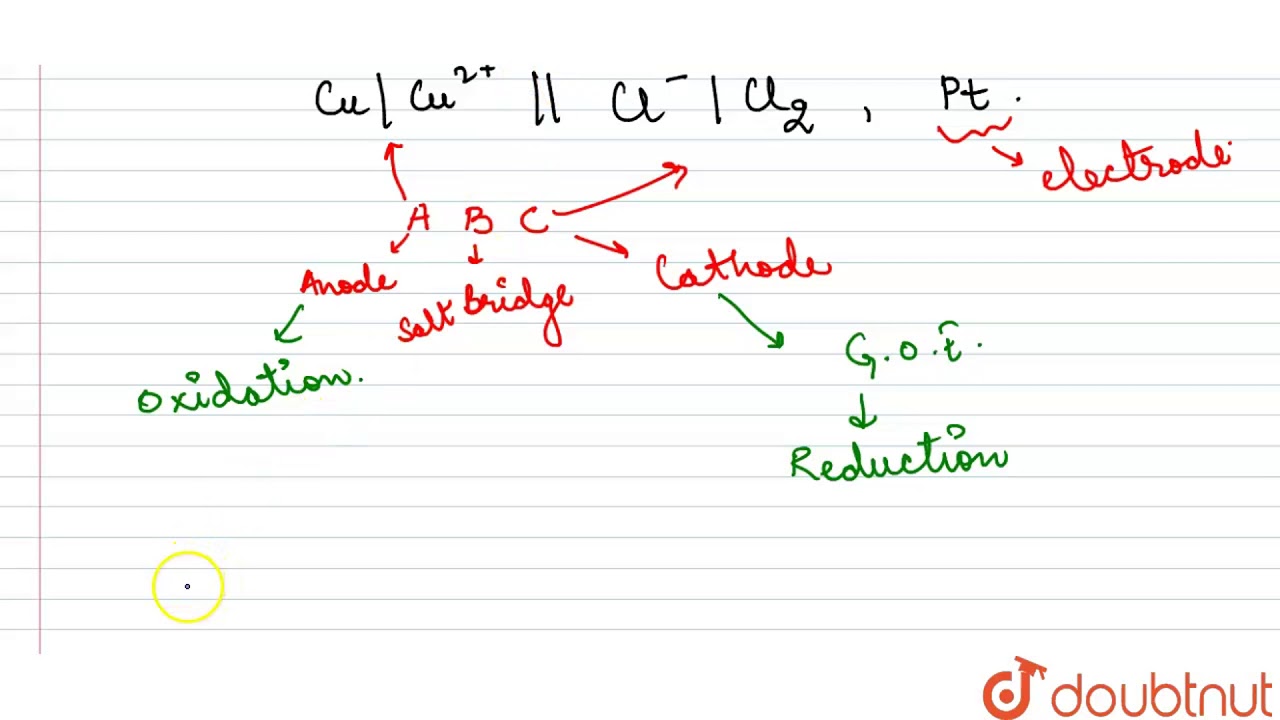 Cu | Cu²⁺ || Cl⁻ | Cl₂ , Pt .
electrode.
A B C
Anode
Salt bridge
Cathode
Oxidation.
G.O.E.
Reduction
doubtnut